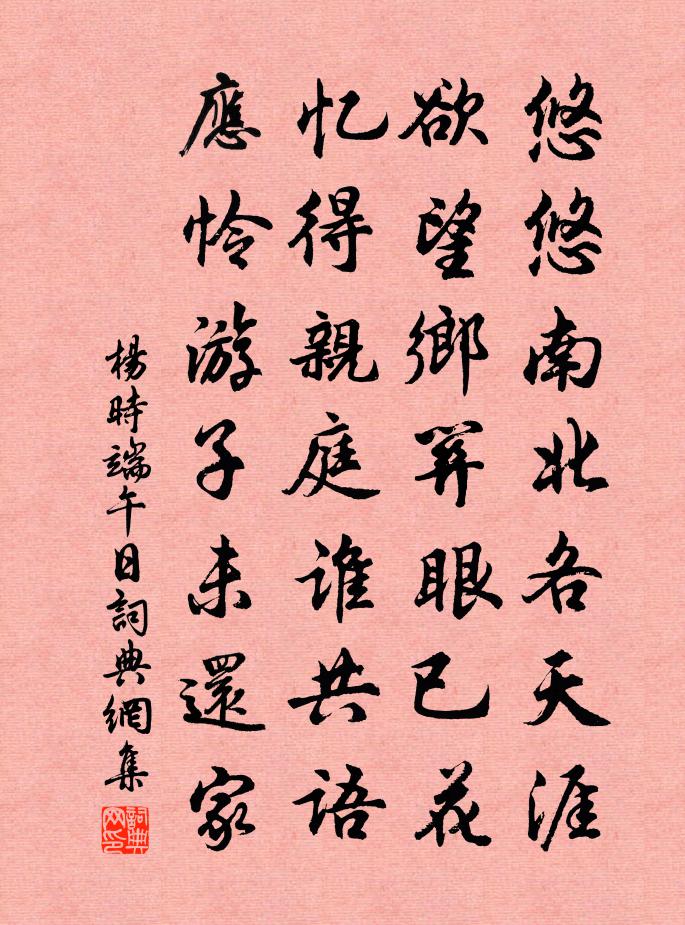 悠悠南北各天涯
欲望鄉関眼已花
忆得親庭谁共語
應怜游子未還家
楊時端午日詞典網集
詞典网印